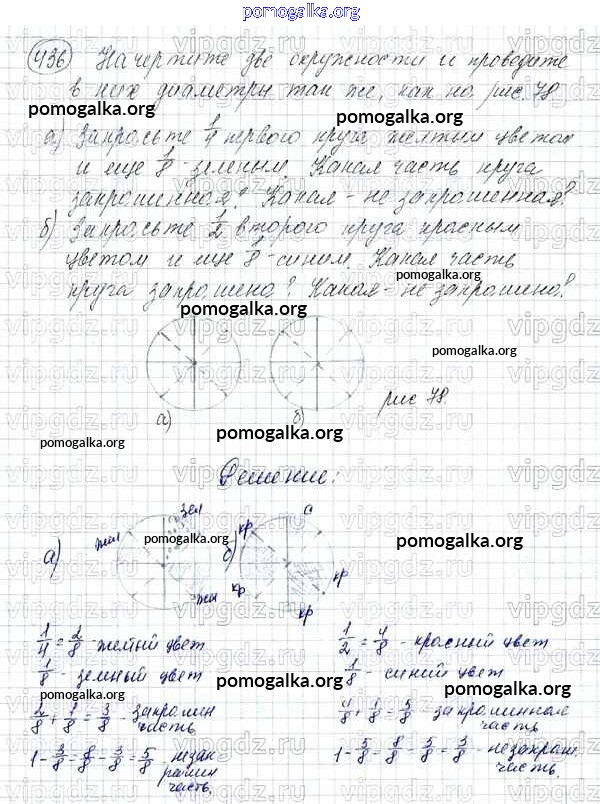 pomogalka.org
436 Начертите две окружности и проведите
в них диаметры так же, как на рис. 78
pomogalka.org
а) Закрасьте 1/4 первого круга желтым цветом
и еще 1/8 - зеленым. Какая часть круга
закрашенная? Какая - не закрашенная?
б) Закрасьте 1/2 второго круга красным
цветом и еще 1/8 - синим. Какая часть
pomogalka.org
круга закрашено? Какая - не закрашено?
pomogalka.org
pomogalka.org
pomogalka.org
а) б) рис 78.
pomogalka.org
pomogalka.org
Решение:
зел с
жел кр
а) pomogalka.org б) pomogalka.org
жел кр кр
кр
1/4 = 2/8 - желтый цвет
1/8 - зеленый цвет
2/8 + 1/8 = 3/8 - закрашен
часть
1 - 3/8 = 8/8 - 3/8 = 5/8 - незак
рашен
часть.
1/2 = 4/8 - красный цвет
1/8 - синий цвет
4/8 + 1/8 = 5/8 - закрашенная
часть
1 - 5/8 = 8/8 - 5/8 = 3/8 - незакраш.
часть.
pomogalka.org
pomogalka.org
pomogalka.org
pomogalka.org
pomogalka.org
vipgdz.ru